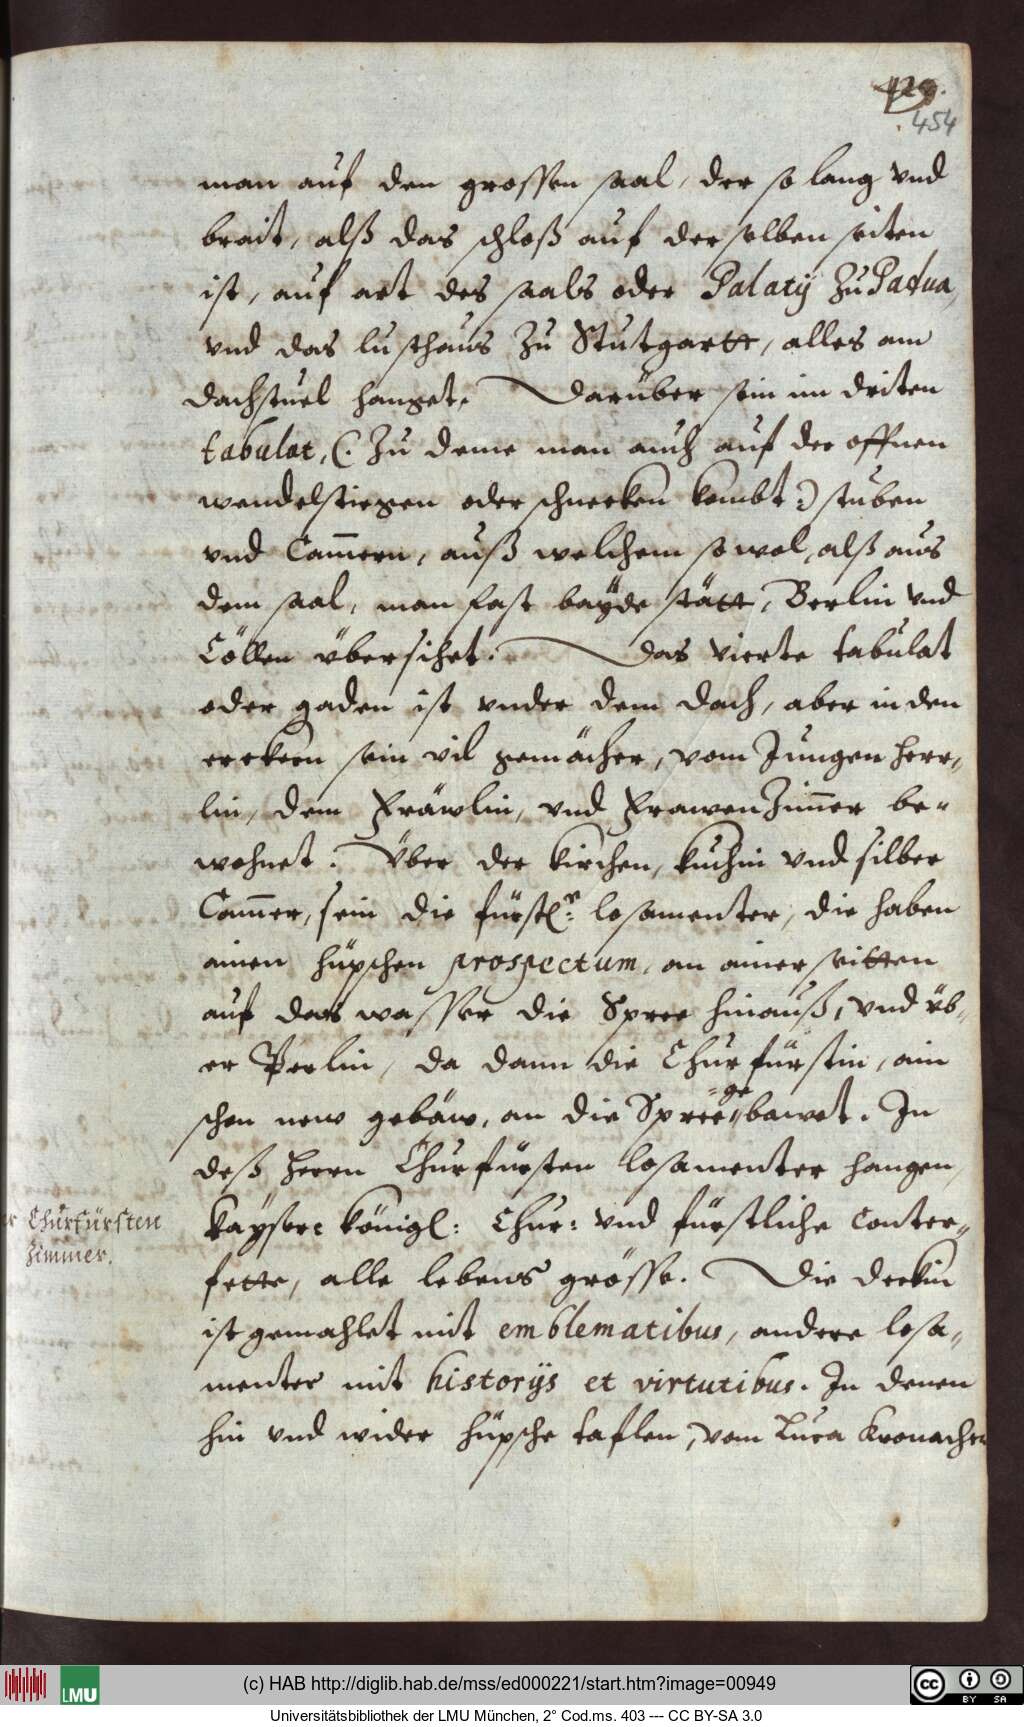 129.
454
man auf den grossen saal, der so lang vnd
brait, alß das schloß auf derselben seiten
ist, auf art des saals oder Palatij Zu Padua,
vnd das lusthaus Zu Stutgartt, alles am
dachstuel hanget. Darüber sein im driten
tabulat, (: Zu deme man auch auf der offnen
wendelstiegen oder schnecken kombt :) stuben
vnd Cam̄ern, auß welchem sowol, alß aus
dem saal, man fast bayde stätt, Berlin vnd
Cöllen übersihet. Das vierte tabulat
oder gaden ist vnder dem dach, aber in den
erckern sein vil gemächer, vom Jungen herr,,
lin, dem Fräwlin, vnd FrawenZim̄er be-
wohnet. Über der kirchen, kuchin vnd silber
Cam̄er, sein die fürstl:n losamenter, die haben
ainen hüpschen prospectum, an ainer seitten
auf das wasser die Spree hinauß, vnd üb-
er Perlin, da dann die Churfürstin, ain
schen new gebäw, an die Spree gebawet. In
deß herrn Churfürsten losamenter hangen,
Kayser: Königl: Chur: vnd fürstliche Conter,,
fette, alle lebens grösse. Die deckin
ist gemahlet mit emblematibus, andere losa,,
menter mit historijs et virtutibus. In denen
hin vnd wider hüpsche taflen, vom Luca Kronacher
r Churfürsten
Zimmer.
(c) HAB http://diglib.hab.de/mss/ed000221/start.htm?image=00949
LMU
cc BY SA
Universitätsbibliothek der LMU München, 2° Cod.ms. 403 --- CC BY-SA 3.0